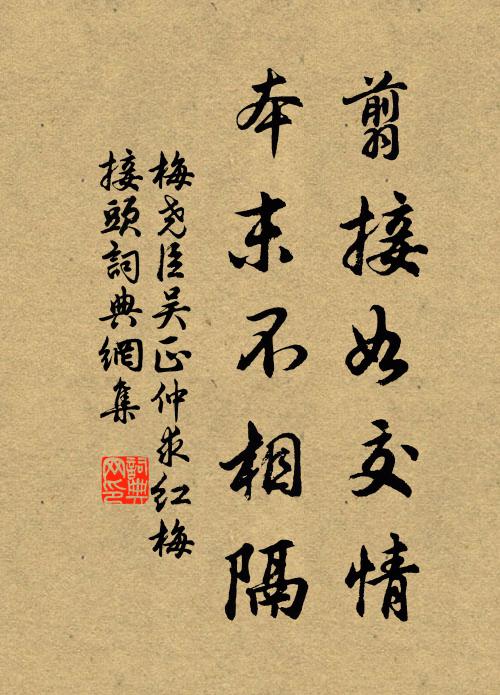 翦接如交情
本末不相隔
梅堯臣吴正仲求红梅
接頭詞典網集
詞典
网印